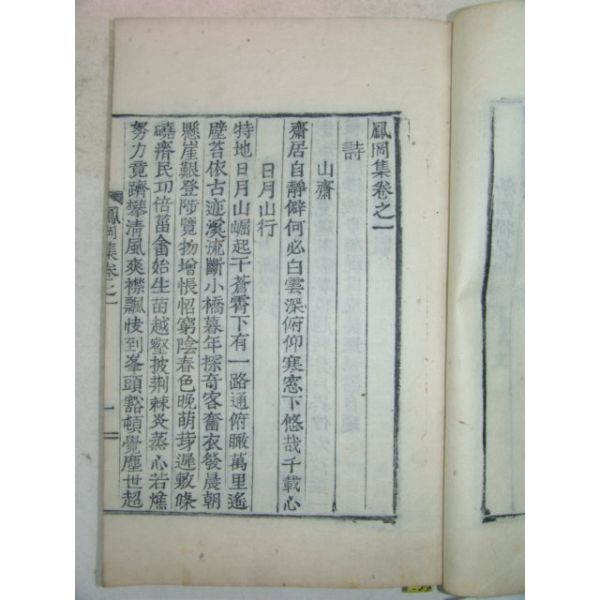 鳳岡集卷之一
詩
山齋
齋居自靜僻何必白雲深俯仰寒窓下悠哉千載心
日月山行
特地日月山崛起干蒼霄下有一路通俯瞰萬里遙
壁苔依古迹溪流斷小橋暮年探奇客奮衣發晨朝
懸崖艱登陟覽物增悵怊窮陰春色晚萌芽遲敷條
磽瘠民功倍菑畬始生苗越壑披荊棘炎蒸心若燋
努力竟躋攀淸風爽襟飄悛到峯頭豁頓覺塵世超
鳳岡集卷之一
一